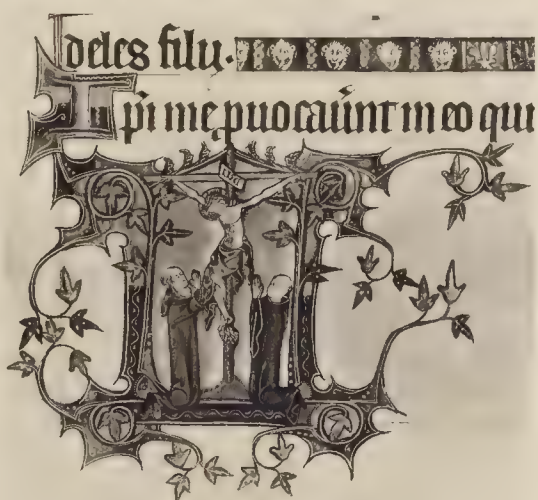 deles filij.
Ip̄i me ꝓuocaūnt in eo qui